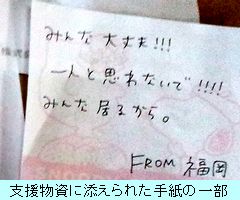 みんな 大丈夫!!!
一人と思わないで!!!!
みんな居るから。
FROM 福岡
支援物資に添えられた手紙の一部